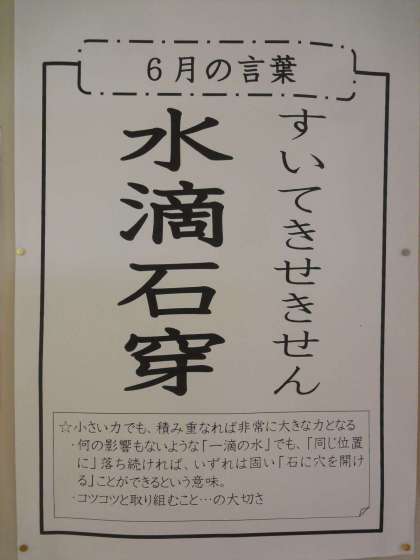 6月の言葉
すいてきせきせん
水滴石穿
☆小さい力でも、積み重なれば非常に大きな力となる
・何の影響もないような「一滴の水」でも、「同じ位置
に」落ち続ければ、いずれは固い「石に穴を開け
る」ことができるという意味。
・コツコツと取り組むこと…の大切さ